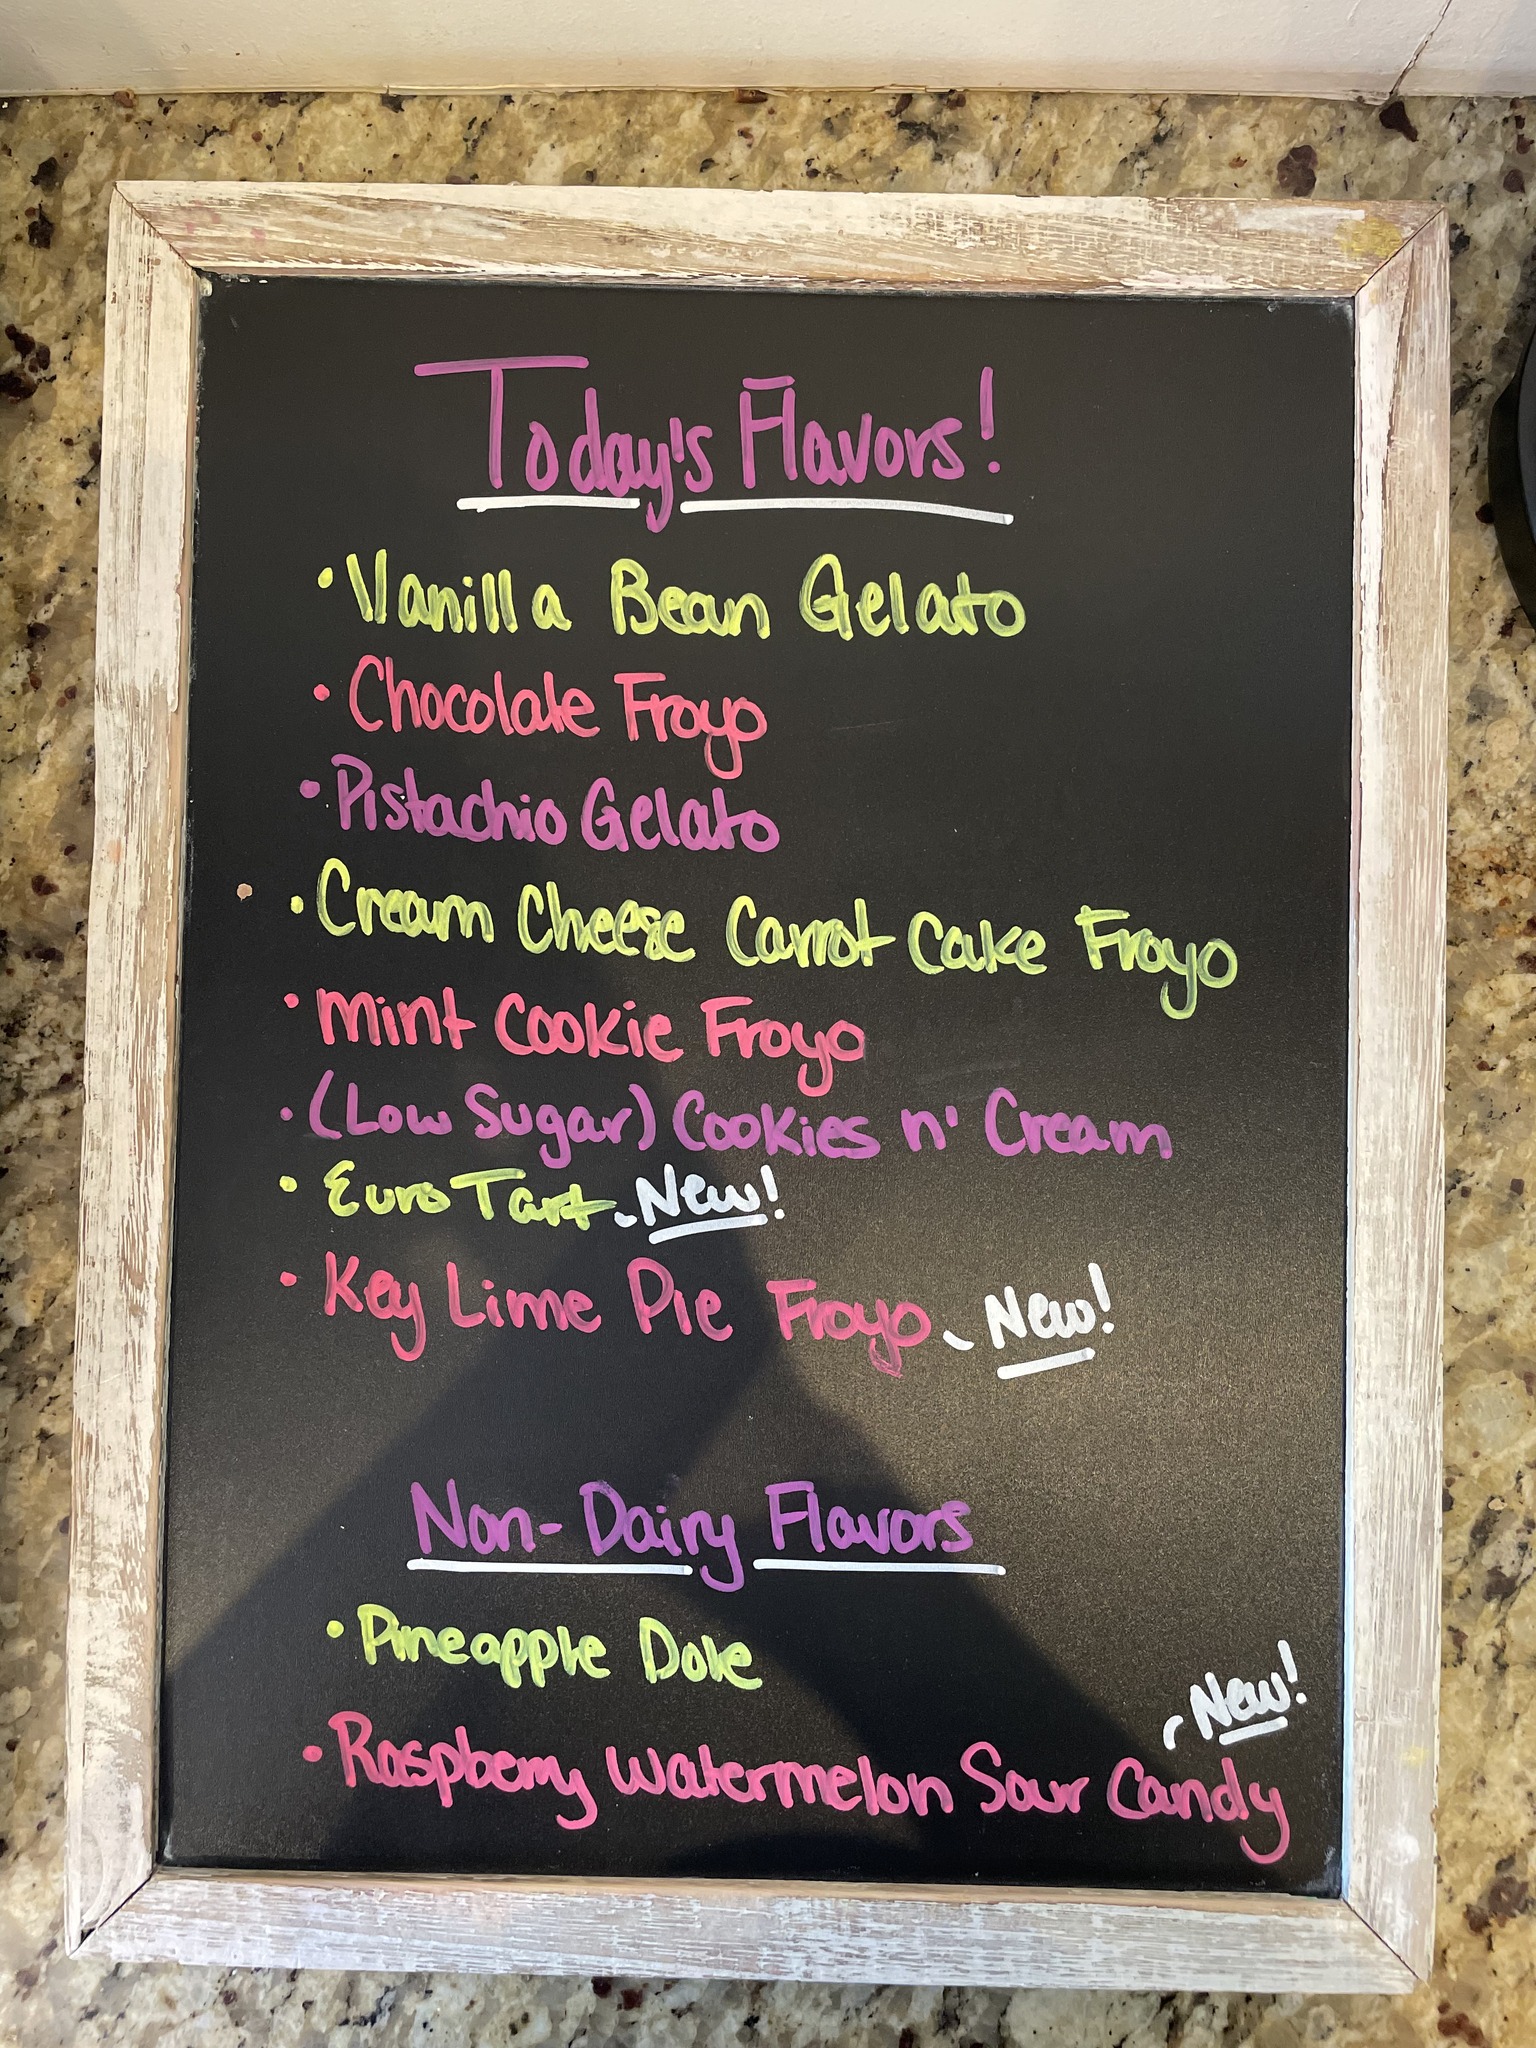 Today's Flavors!
• Vanilla Bean Gelato
• Chocolate Froyo
• Pistachio Gelato
• Cream Cheese Carrot Cake Froyo
• Mint Cookie Froyo
• (Low Sugar) Cookies n' Cream
• Euro Tart - New!
• Key Lime Pie Froyo - New!
Non-Dairy Flavors
• Pineapple Dole
- New!
• Raspberry Watermelon Sour Candy